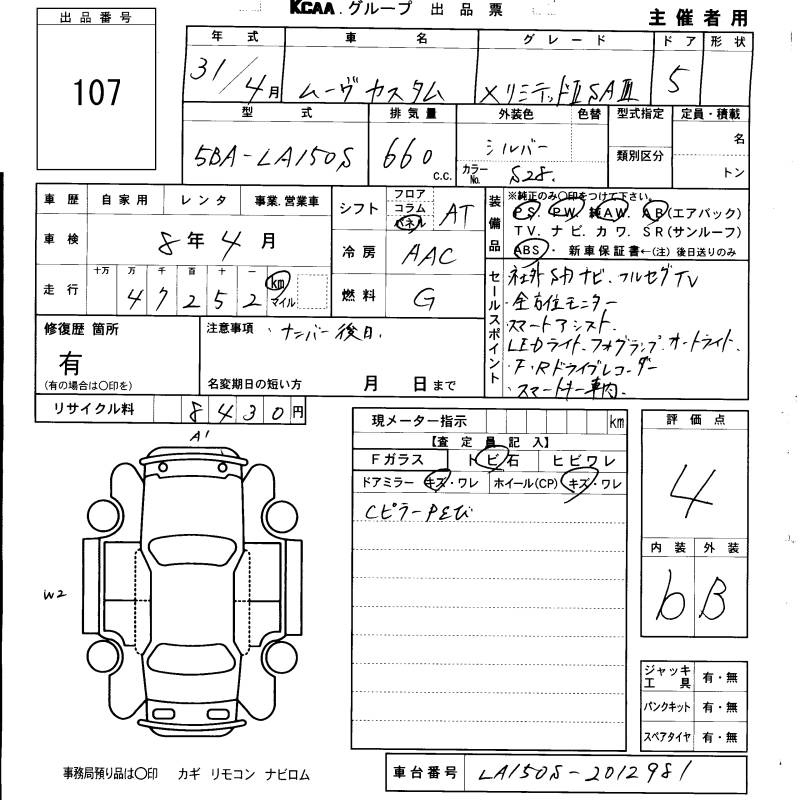 KCAA.グループ 出品票
主催者用
出品番号
107
年式 車名 グレード ドア 形状
31/4月 ムーヴカスタム XリミテッドⅡSAⅢ 5
型式 排気量 外装色 色替 型式指定 定員・積載
5BA-LA150S 660 c.c. シルバー 名
カラーNo. S28. 類別区分 トン
車歴 自家用 レンタ 事業.営業車
シフト フロア コラム パネル AT
装備品 ※純正のみ〇印をつけて下さい。
PS. PW. 純AW. AB(エアバック)
TV. ナビ. カワ. SR(サンルーフ)
ABS. ・ 新車保証書←(注)後日送りのみ
車検 8年4月
冷房 AAC
走行 十万 万 千 百 十 一
4 7 2 5 2 km マイル
燃料 G
セールスポイント
・社外SDナビ、フルセグTV
・全方位モニター
・スマートアシスト、
・LEDライト、フォグランプ、オートライト、
・F,Rドライブレコーダー
・スマートキー車内.
修復歴 箇所
有
(有の場合は〇印を)
注意事項 ・ナンバー後日.
名変期日の短い方 月 日まで
リサイクル料 8430円
現メーター指示 km
【査定員記入】
Fガラス トビ石 ヒビワレ
ドアミラー キズ・ワレ ホイール(CP) キズ・ワレ
CピラーPとび
評価点
4
内装 外装
b B
A1
W2
ジャッキ工具 有・無
パンクキット 有・無
スペアタイヤ 有・無
事務局預り品は〇印 カギ リモコン ナビロム
車台番号 LA150S-2012981